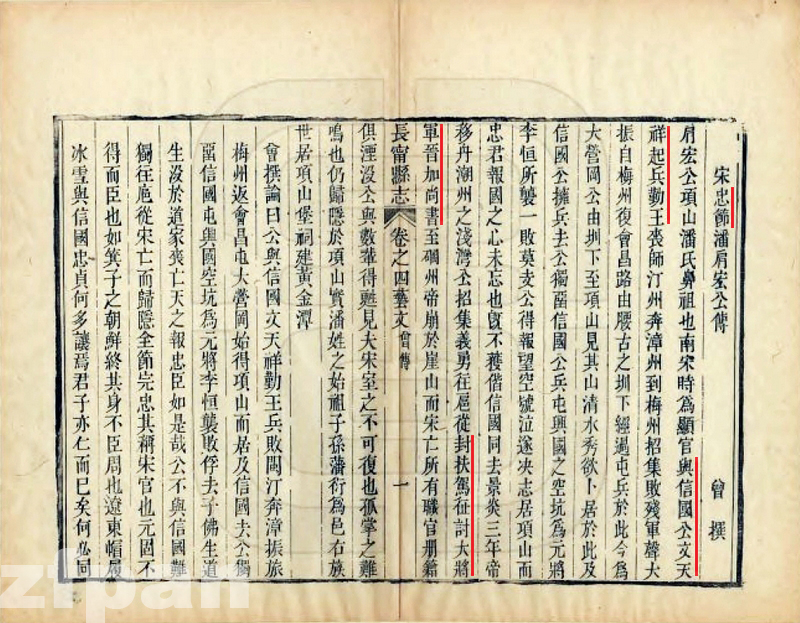 宋忠節潘肩宏公傳 曾撰
肩宏公項山潘氏鼻祖也南宋時爲顯官與信國公文天
祥起兵勤王喪師汀州奔漳州到梅州招集敗殘軍聲大
振自梅州復會昌路由腰古之圳下經過屯兵於此今爲
大營岡公由圳下至項山見其山清水秀欲卜居於此及
信國公擁兵去公獨留信國公兵屯興國之空坑爲元將
李恒所襲一敗莫支公得報望空號泣遂決志居項山而
忠君報國之心未忘也旣不獲偕信國同去景炎三年帝
移丹潮州之淺灣公招集義勇往扈從封扶駕征討大將
軍晉加尚書至碙州帝崩於崖山而宋亡所有職官册籍
長寧縣志 卷之四藝文 會傳 一
俱湮沒公與數輩得甦見大宋室之不可復也孤掌之難
鳴也仍歸隱於項山實潘姓之始祖子孫藩衍爲邑右族
世居項山堡祠建黃金潭
曾撰論曰公與信國文天祥勤王兵敗閩汀奔漳振旅
梅州返會昌屯大營岡始得項山而居及信國去公獨
留信國屯興國空坑爲元將李恒襲敗俘去子佛生道
生沒於道家喪亡天之報忠臣如是哉公不與信國難
獨往扈從宋亡而歸隱全節完忠其稱宋官也元固不
得而臣也如箕子之朝鮮終其身不臣周也遼東帽履
冰雪與信國忠貞何多讓焉君子亦仁而已矣何必同
zipan